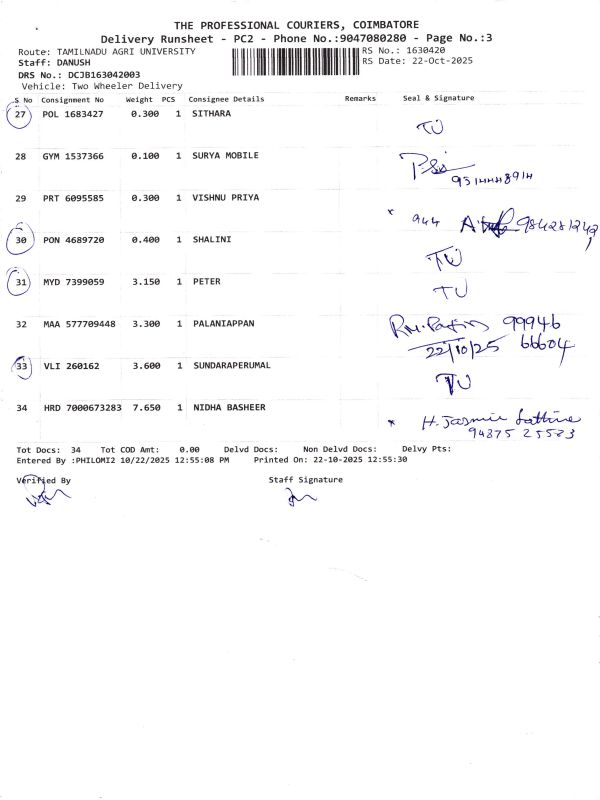 THE PROFESSIONAL COURIERS, COIMBATORE
Delivery Runsheet - PC2 - Phone No.:9047080280 - Page No.:3
Route: TAMILNADU AGRI UNIVERSITY RS No.: 1630420
Staff: DANUSH RS Date: 22-Oct-2025
DRS No.: DCJB163042003
Vehicle: Two Wheeler Delivery
S No Consignment No Weight PCS Consignee Details Remarks Seal & Signature
27 POL 1683427 0.300 1 SITHARA
TU
28 GYM 1537366 0.100 1 SURYA MOBILE
29 PRT 6095585 0.300 1 VISHNU PRIYA
* 944
30 PON 4689720 0.400 1 SHALINI
TU
31 MYD 7399059 3.150 1 PETER
TU
32 MAA 577709448 3.300 1 PALANIAPPAN
99946
22/10/25 66604
33 VLI 260162 3.600 1 SUNDARAPERUMAL
TU
34 HRD 7000673283 7.650 1 NIDHA BASHEER
* H. Jasmie
94875 25583
Tot Docs: 34 Tot COD Amt: 0.00 Delvd Docs: Non Delvd Docs: Delvy Pts:
Entered By :PHILOMI2 10/22/2025 12:55:08 PM Printed On: 22-10-2025 12:55:30
Verified By Staff Signature